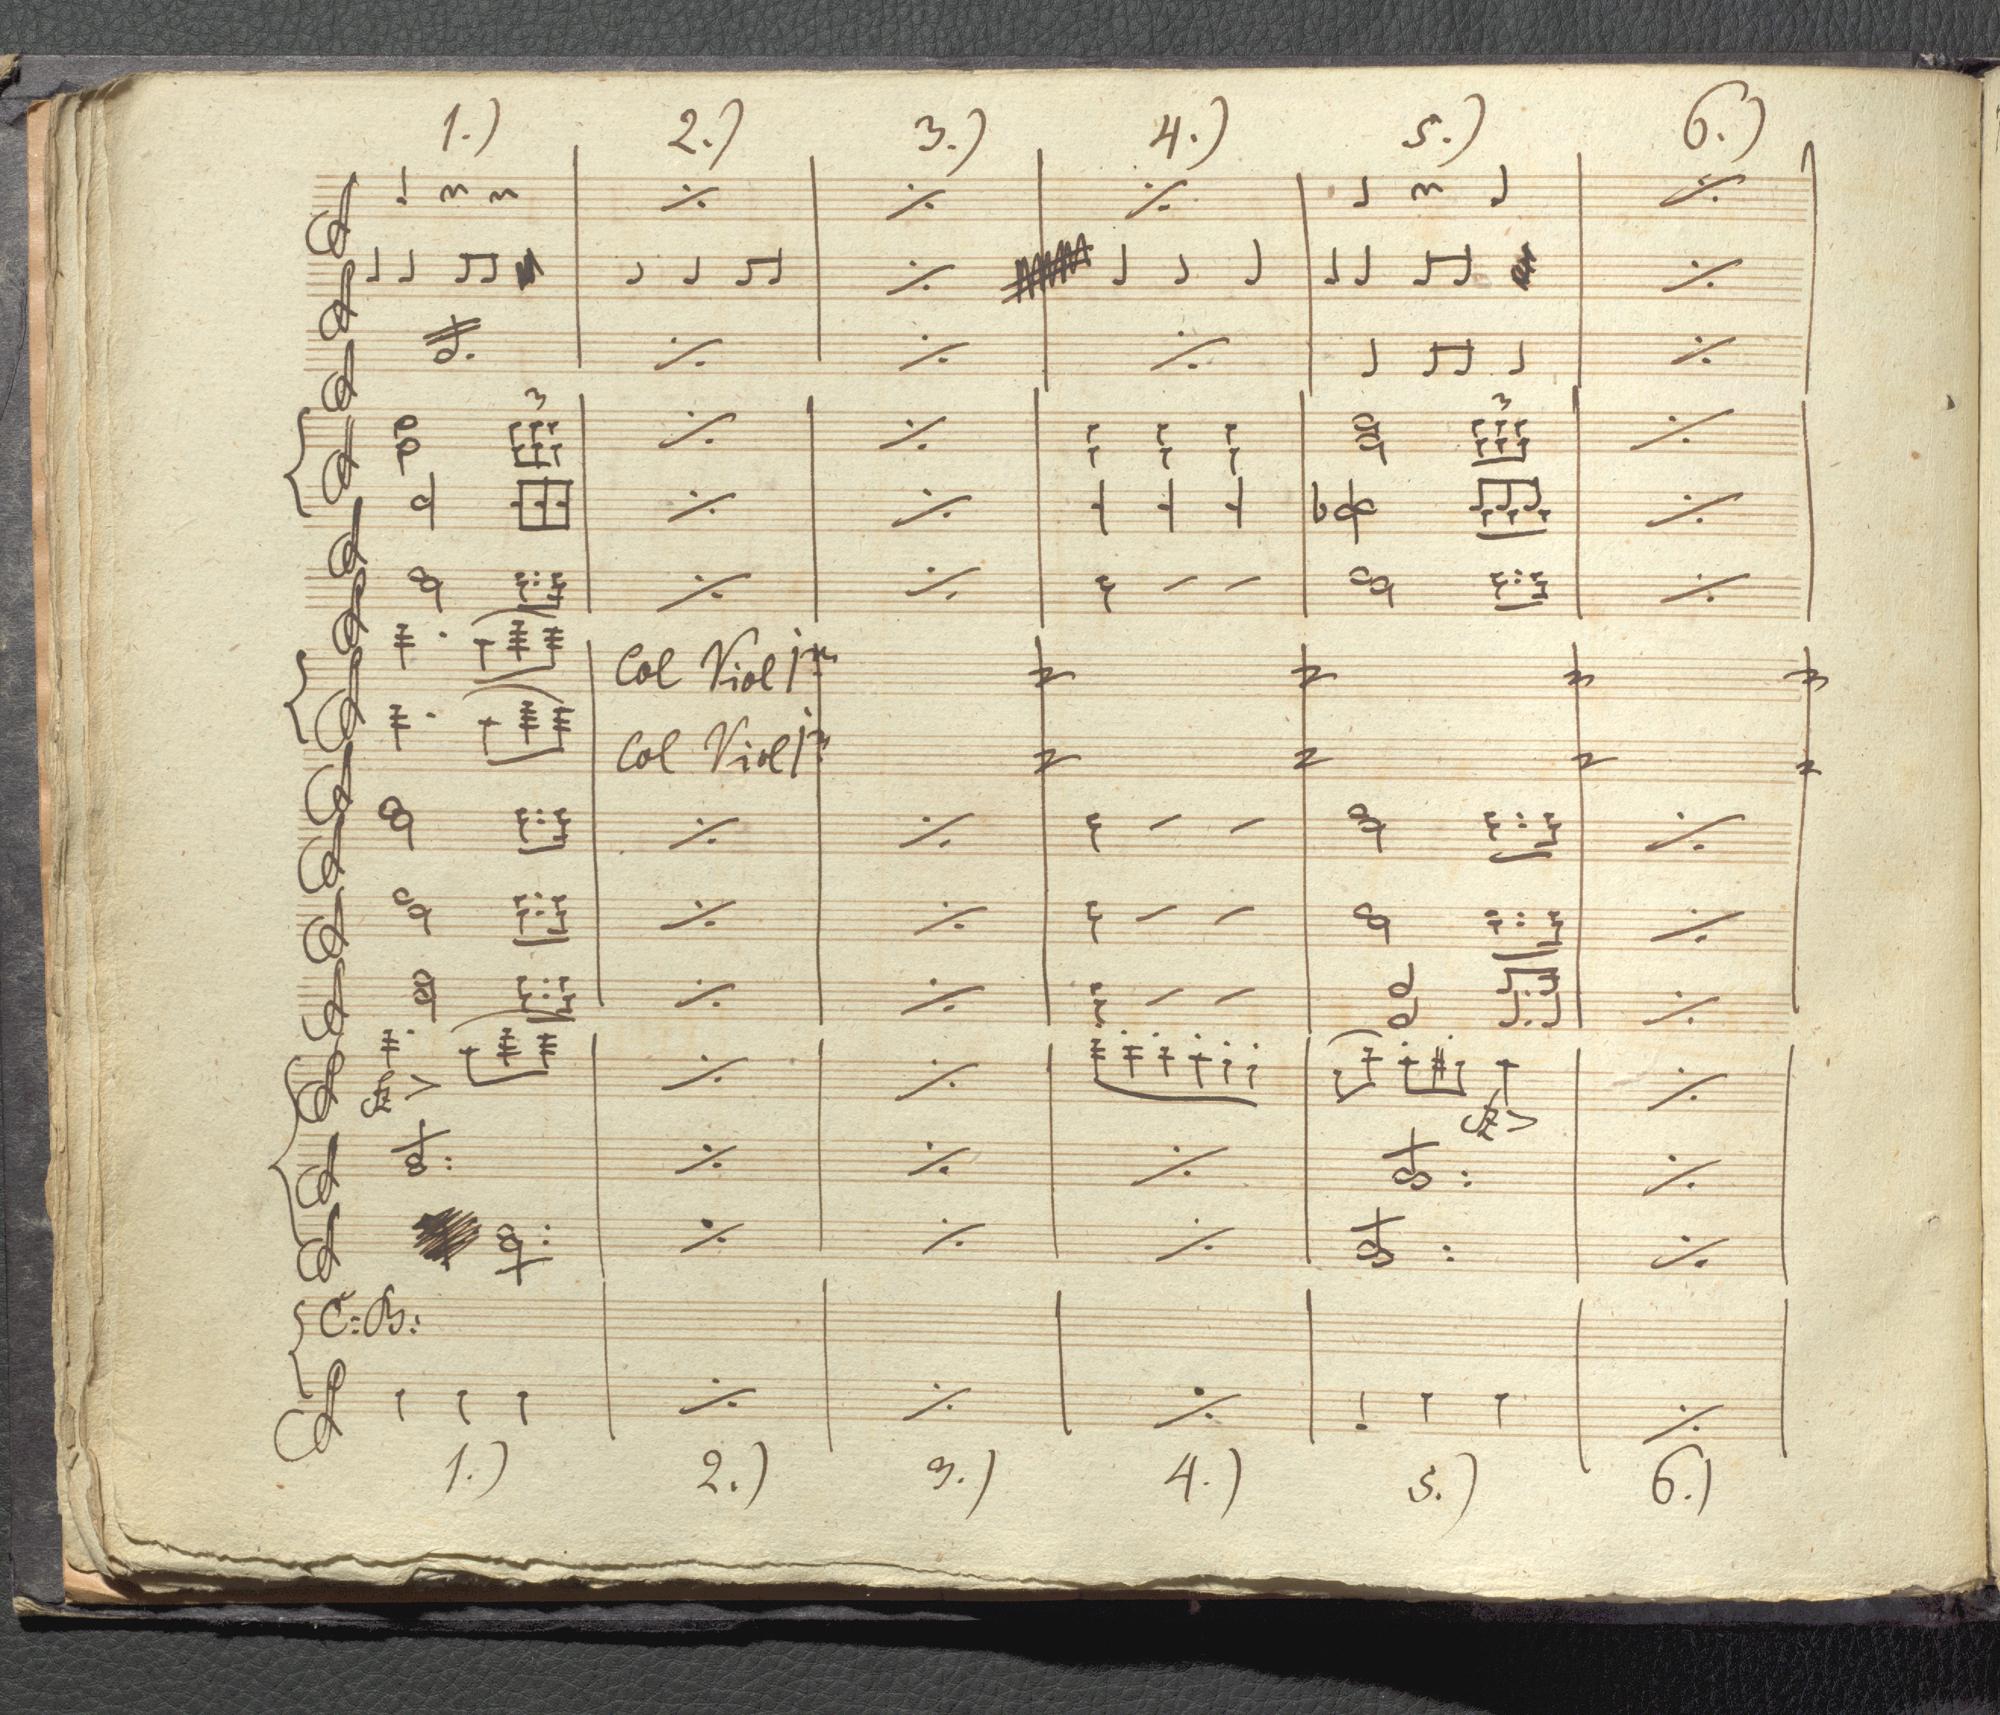 1.) 2.) 3.) 4.) 5.) 6.)
3 3
Col Viol 1mo
Col Viol 1mo
sf
sf
C: B:
1.) 2.) 3.) 4.) 5.) 6.)